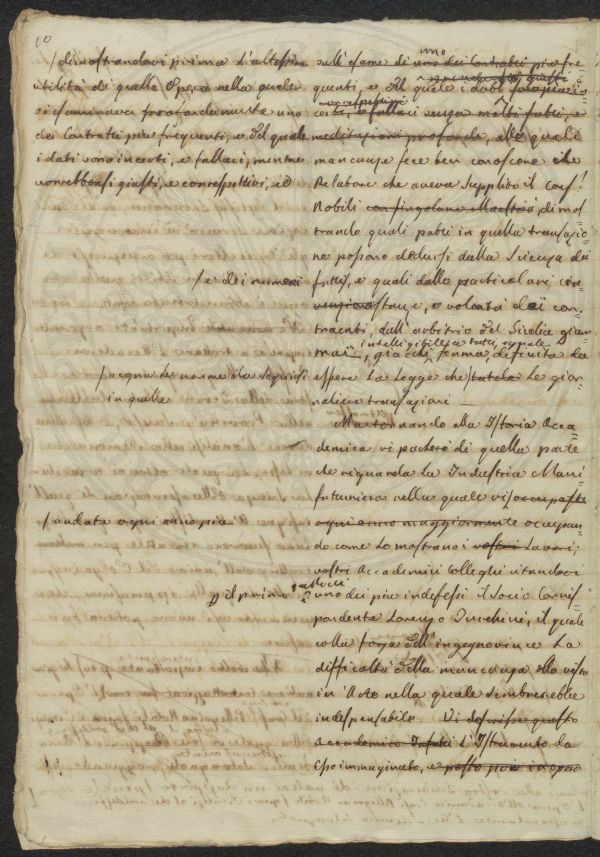 10
/ dimostrandovi prima l'altessima
utilità di quella Opera nella quale
si esaminava profondamente uno
dei Contratti più frequenti, e del quale
i dati sono incerti, e fallaci, mentre
vorrebbonsi giusti, e correspettivi, ed
/ e dei numeri
/ segna le norme da seguirsi
in quelle
/ andate ogni anno più
il primo
sull'esame di uno dei Contratti più fre=
quenti, e del quale i dati
fallaci senza molti fatti, e
meditazioni profonde, alle quali
mancanze fece ben conoscere che
Relatore che aveva supplito il Cons.
Nobili con singolare Maestria, dimos=
trando quali patti in quella transazio=
ne possono dedursi dalla Scienza dei
fatti, e quali dalle particolari cir=
stanze, e volontà dei con=
traenti, dall'arbitrio del Giudice giam=
intelligibile a tutti, eguale
mai, giacchè ferma, definita dee
essere la Legge che tutela le gior=
naliere transazioni —
Ma tornando alla Istoria Acca=
demica vi parlerò di quella parte
che riguarda la Industria Mani=
fatturiera nella quale vi occupaste
ogni anno maggiormente occupan=
do come lo mostrano i vostri Lavori;
vostri Accademici Colleghi citandovi
uno dei più indefessi il Socio Corris=
pondente Lorenzo Turchini, il quale
colla forza dell'ingegno vince la
difficoltà della mancanza della vista
in Arte nella quale sembrerebbe
indispensabile. Vi descrisse questo
Accademico Infatti l'Istrumento da
Esso immaginato, e posto poi in opera